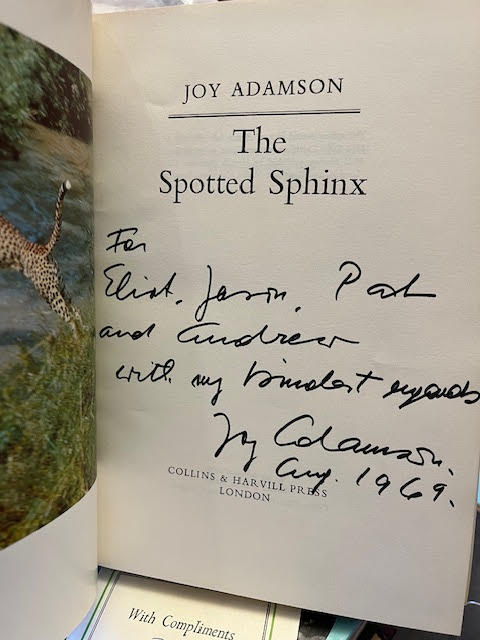 JOY ADAMSON
The
Spotted Sphinx
For
Eliot, Jason,
and Andrew
with my kindest regards
Joy Adamson.
Aug. 1969.
COLLINS & HARVILL PRESS
LONDON
With Compliments